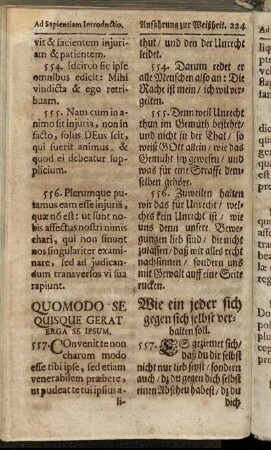 Ad Sapientiam Introductio.
vit & facientem injuri-
am & patientem.
554. Idcirco sic ipse
omnibus edicit: Mihi
vindicta & ego retri-
buam.
555. Nam cum in a-
nimo sit injuria, non in
facto, solus DEus scit,
qui fuerit animus, &
quod ei debeatur sup-
plicium.
556. Plerumque pu-
tamus eam esse injuriā,
quæ nō est: ut sunt no-
bis affectus nostri nimis
chari, qui non sinunt
nos singulariter exami-
nare, sed ad judican-
dum transversos vi sua
rapiunt.
QUOMODO SE
QUISQUE GERAT
ERGA SE IPSUM.
557. COnvenit te non
charum modo
esse tibi ipse, sed etiam
venerabilem præbere,
ut pudeat te tui ipsius a-
li-
Anführung zur Weißheit. 224
thut/ und den der Unrecht
leidet.
554. Darum redet er
alle Menschen also an: Die
Rache ist mein/ ich wil ver-
gelten.
555. Denn weil Unrecht
thun im Gemüth bestehet/
und nicht in der That/ so
weiß GOtt allein/ wie das
Gemüht sey gewesen/ und
was für eine Straffe dem-
selben gehöre.
556. Zuweilen halten
wir das für Unrecht/ wel-
ches kein Unrecht ist/ wie
uns denn unsere Bewe-
gungen lieb sind/ die nicht
zulassen/ daß wir alles recht
nachsinnen/ sondern uns
mit Gewalt auf eine Seite
rucken.
Wie ein jeder sich
gegen sich selbst ver-
halten soll.
557. ES geziemet sich/
daß du dir selbst
nicht nur lieb seyst/ sondern
auch/ dz du gegen dich selbst
einen Abscheu habest/ dz du
dich
Ad